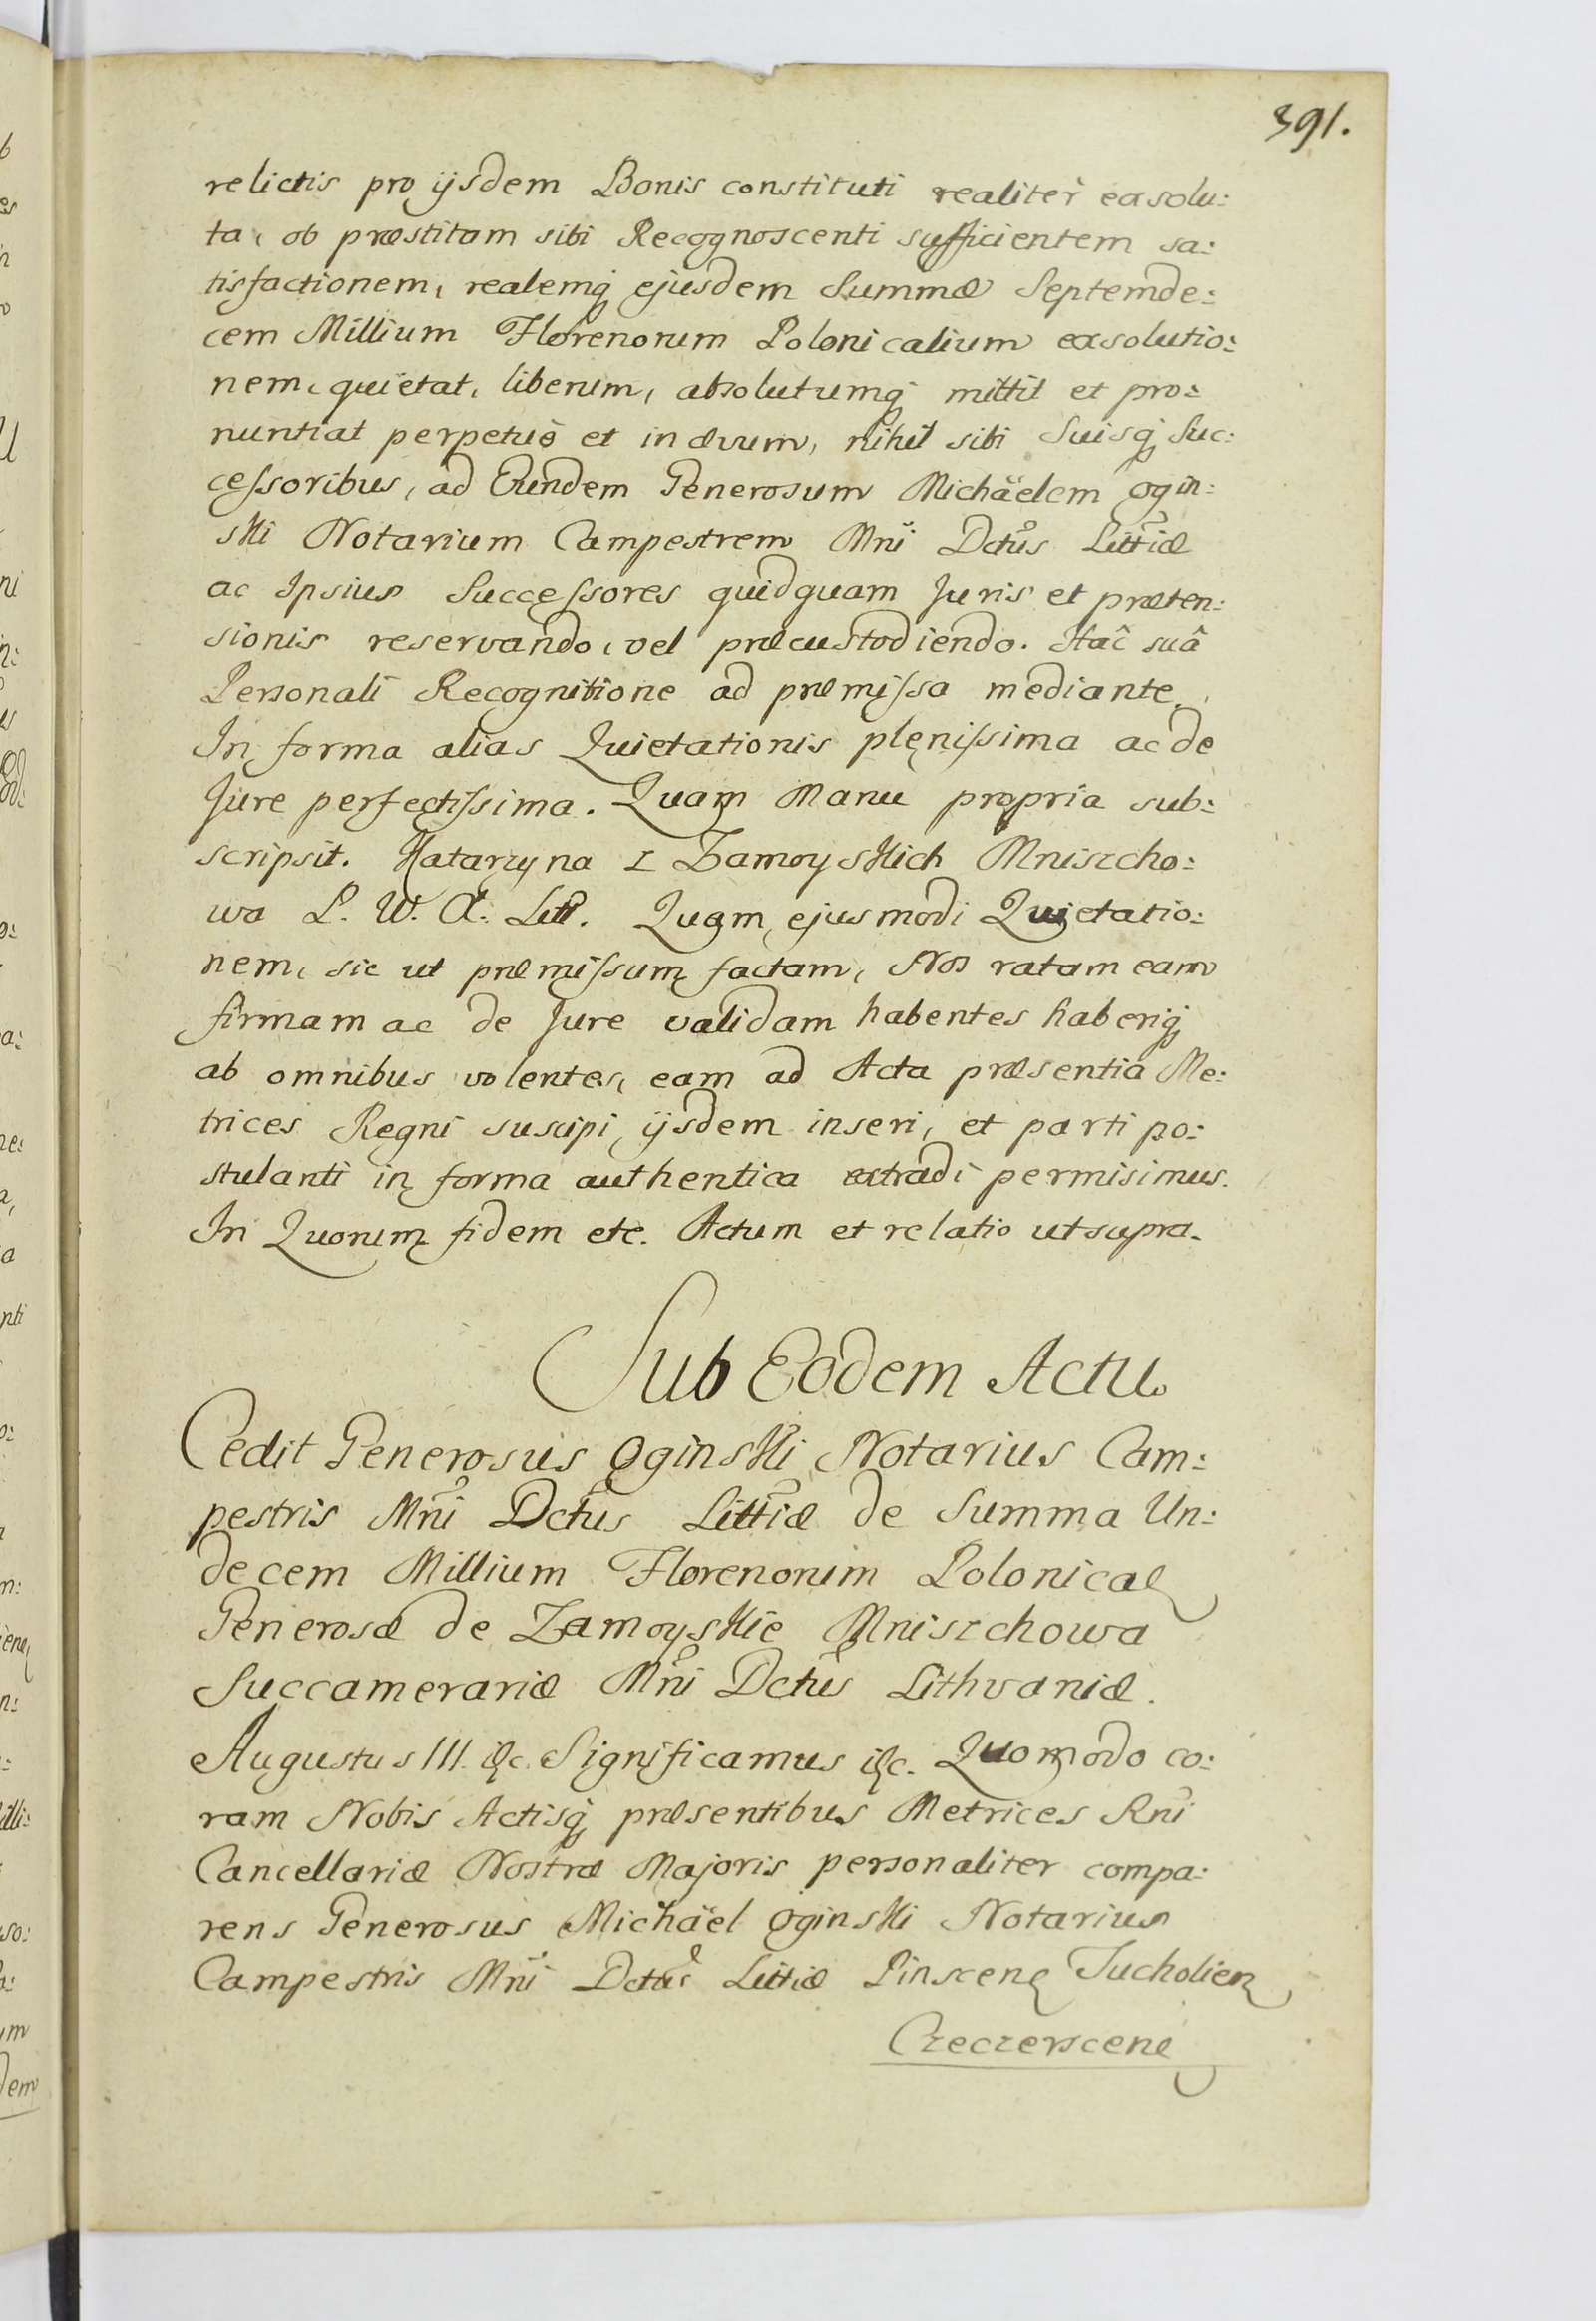 391.
relictis pro ijsdem Bonis constituti realiter exsolu:
ta, ob præstitam sibi Recognoscenti sufficientem sa:
tisfactionem, realemq́ ejusdem Summæ Septemde:
cem Millium Florenorum Polonicalium exsolutio:
nem, quietat, liberum, absolutumq́ mittit et pro:
nuntiat perpetuò et in ævum, nihil sibi Suisq́ Suc:
cessoribus, ad Eundem Generosum Michäelem Ogin:
ski Notarium Campestrem Mni Dctûs Littiæ
ac Ipsius Successores quidquam Juris et præten:
sionis reservando, vel præcustodiendo. Hac suâ
Personali Recognitione ad præmissa mediante.
In forma alias Quietationis plenissima ac de
Jure perfectissima. Quam Manu propria sub:
scripsit. Katarzyna z Zamoyskich Mniszcho:
wa P. W. X. Litt. Quam ejusmodi Quietatio:
nem, sic ut præmissum factam, Nos ratam eam
firmam ac de Jure validam habentes haberiq́
ab omnibus volentes, eam ad Acta præsentia Me:
trices Regni suscipi, ijsdem inseri, et parti po:
stulanti in forma authentica extradi permisimus.
In Quorum fidem etc. Actum et relatio ut supra.
Sub Eodem Actu
Cedit Generosus Oginski Notarius Cam:
pestris Mni Dctûs Littiæ de Summa Un:
decem Millium Florenorum Polonical
Generosæ de Zamoyskie Mniszchowa
Succamerariæ Mni Dctûs Lithvaniæ.
Augustus III. &c. Significamus &c. Quomodo co:
ram Nobis Actisq́ præsentibus Metrices Rni
Cancellariæ Nostræ Majoris personaliter compa:
rens Generosus Michäel Oginski Notarius
Campestris Mni Dctûs Littiæ Pinscen Tucholien
Czeczerscen